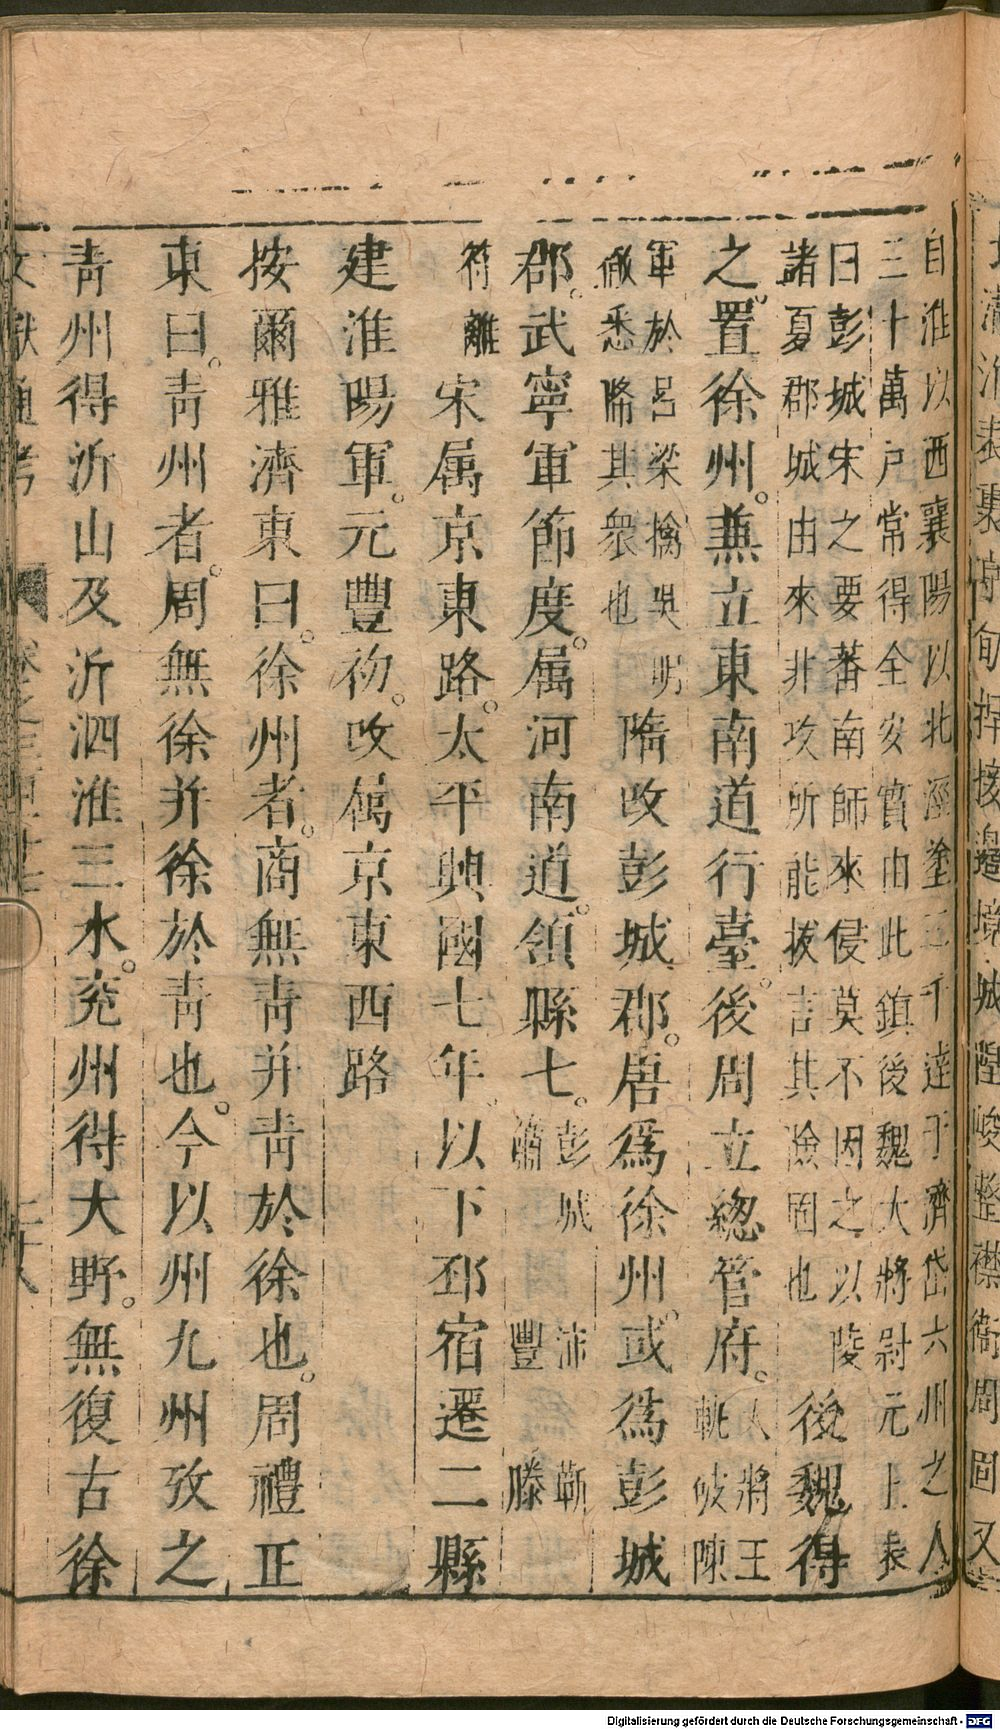 自淮以西襄陽以北涇塗二千達于濟岱六州之人
三十萬戶常得全安實由此鎮後魏大將尉元上表
曰彭城宋之要蕃南師來侵莫不因之以陵
諸夏郡城由來非攻所能拔言其險固也
後魏得
之置徐州。兼立東南道行臺。後周立總管府。
大將王
軌破陳
軍於呂梁擒吳明
徹悉降其衆也
隋改彭城郡。唐爲徐州。或爲彭城
郡。武寧軍節度。属河南道。領縣七。
彭城 沛 蘄
蕭 豐 滕
符離
宋属京東路。太平興國七年。以下邳宿遷二縣
建淮陽軍。元豐初。改屬京東西路
按爾雅濟東曰。徐州者。商無青并青於徐也。周禮正
東曰。青州者。周無徐并徐於青也。今以州九州攷之
青州得沂山及沂泗淮三水。兖州得大野。無復古徐
文獻通考
Digitalisierung gefördert durch die Deutsche Forschungsgemeinschaft - DFG